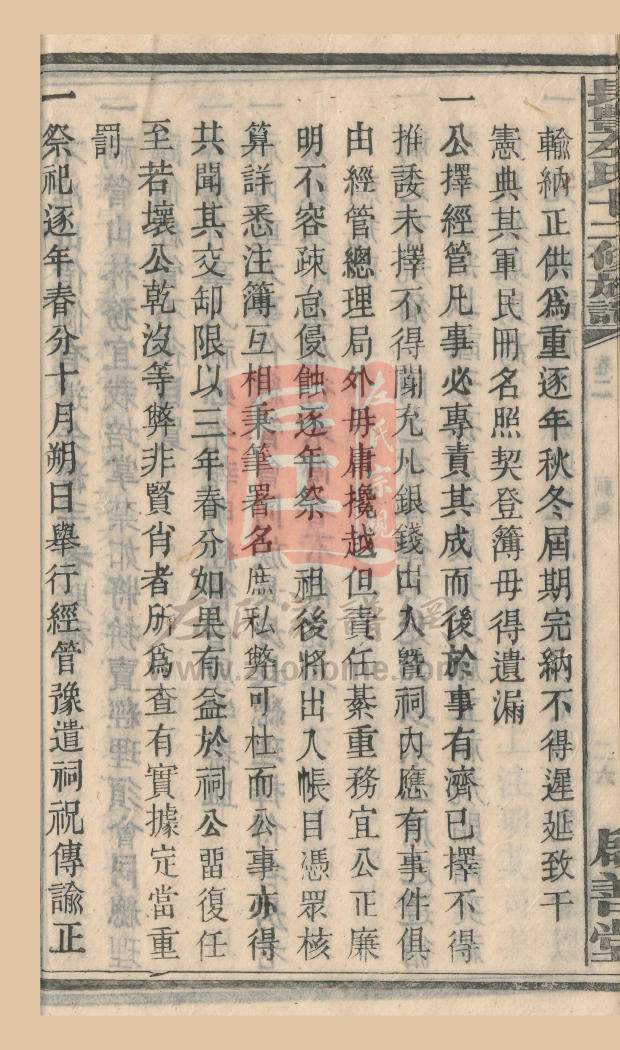 輸納正供爲重逐年秋冬屆期完納不得遲延致干
憲典其軍民冊名照契登簿毋得遺漏
一公擇經管凡事必專責其成而後於事有濟已擇不得
推諉未擇不得闖充凡銀錢出入曁祠內應有事件俱
由經管總理局外毋庸攙越但責任綦重務宜公正廉
明不容疎怠侵蝕逐年祭 祖後將出入帳目憑眾核
算詳悉注簿互相秉筆署名庶私弊可杜而公事亦得
共聞其交卸限以三年春分如果有益於祠公畱復任
至若壞公乾沒等弊非賢肖者所爲查有實據定當重
罰
一祭祀逐年春分十月朔日舉行經管豫遣祠祝傳諭正
卷二
二六
善堂
左氏宗親
www.zgohome.com